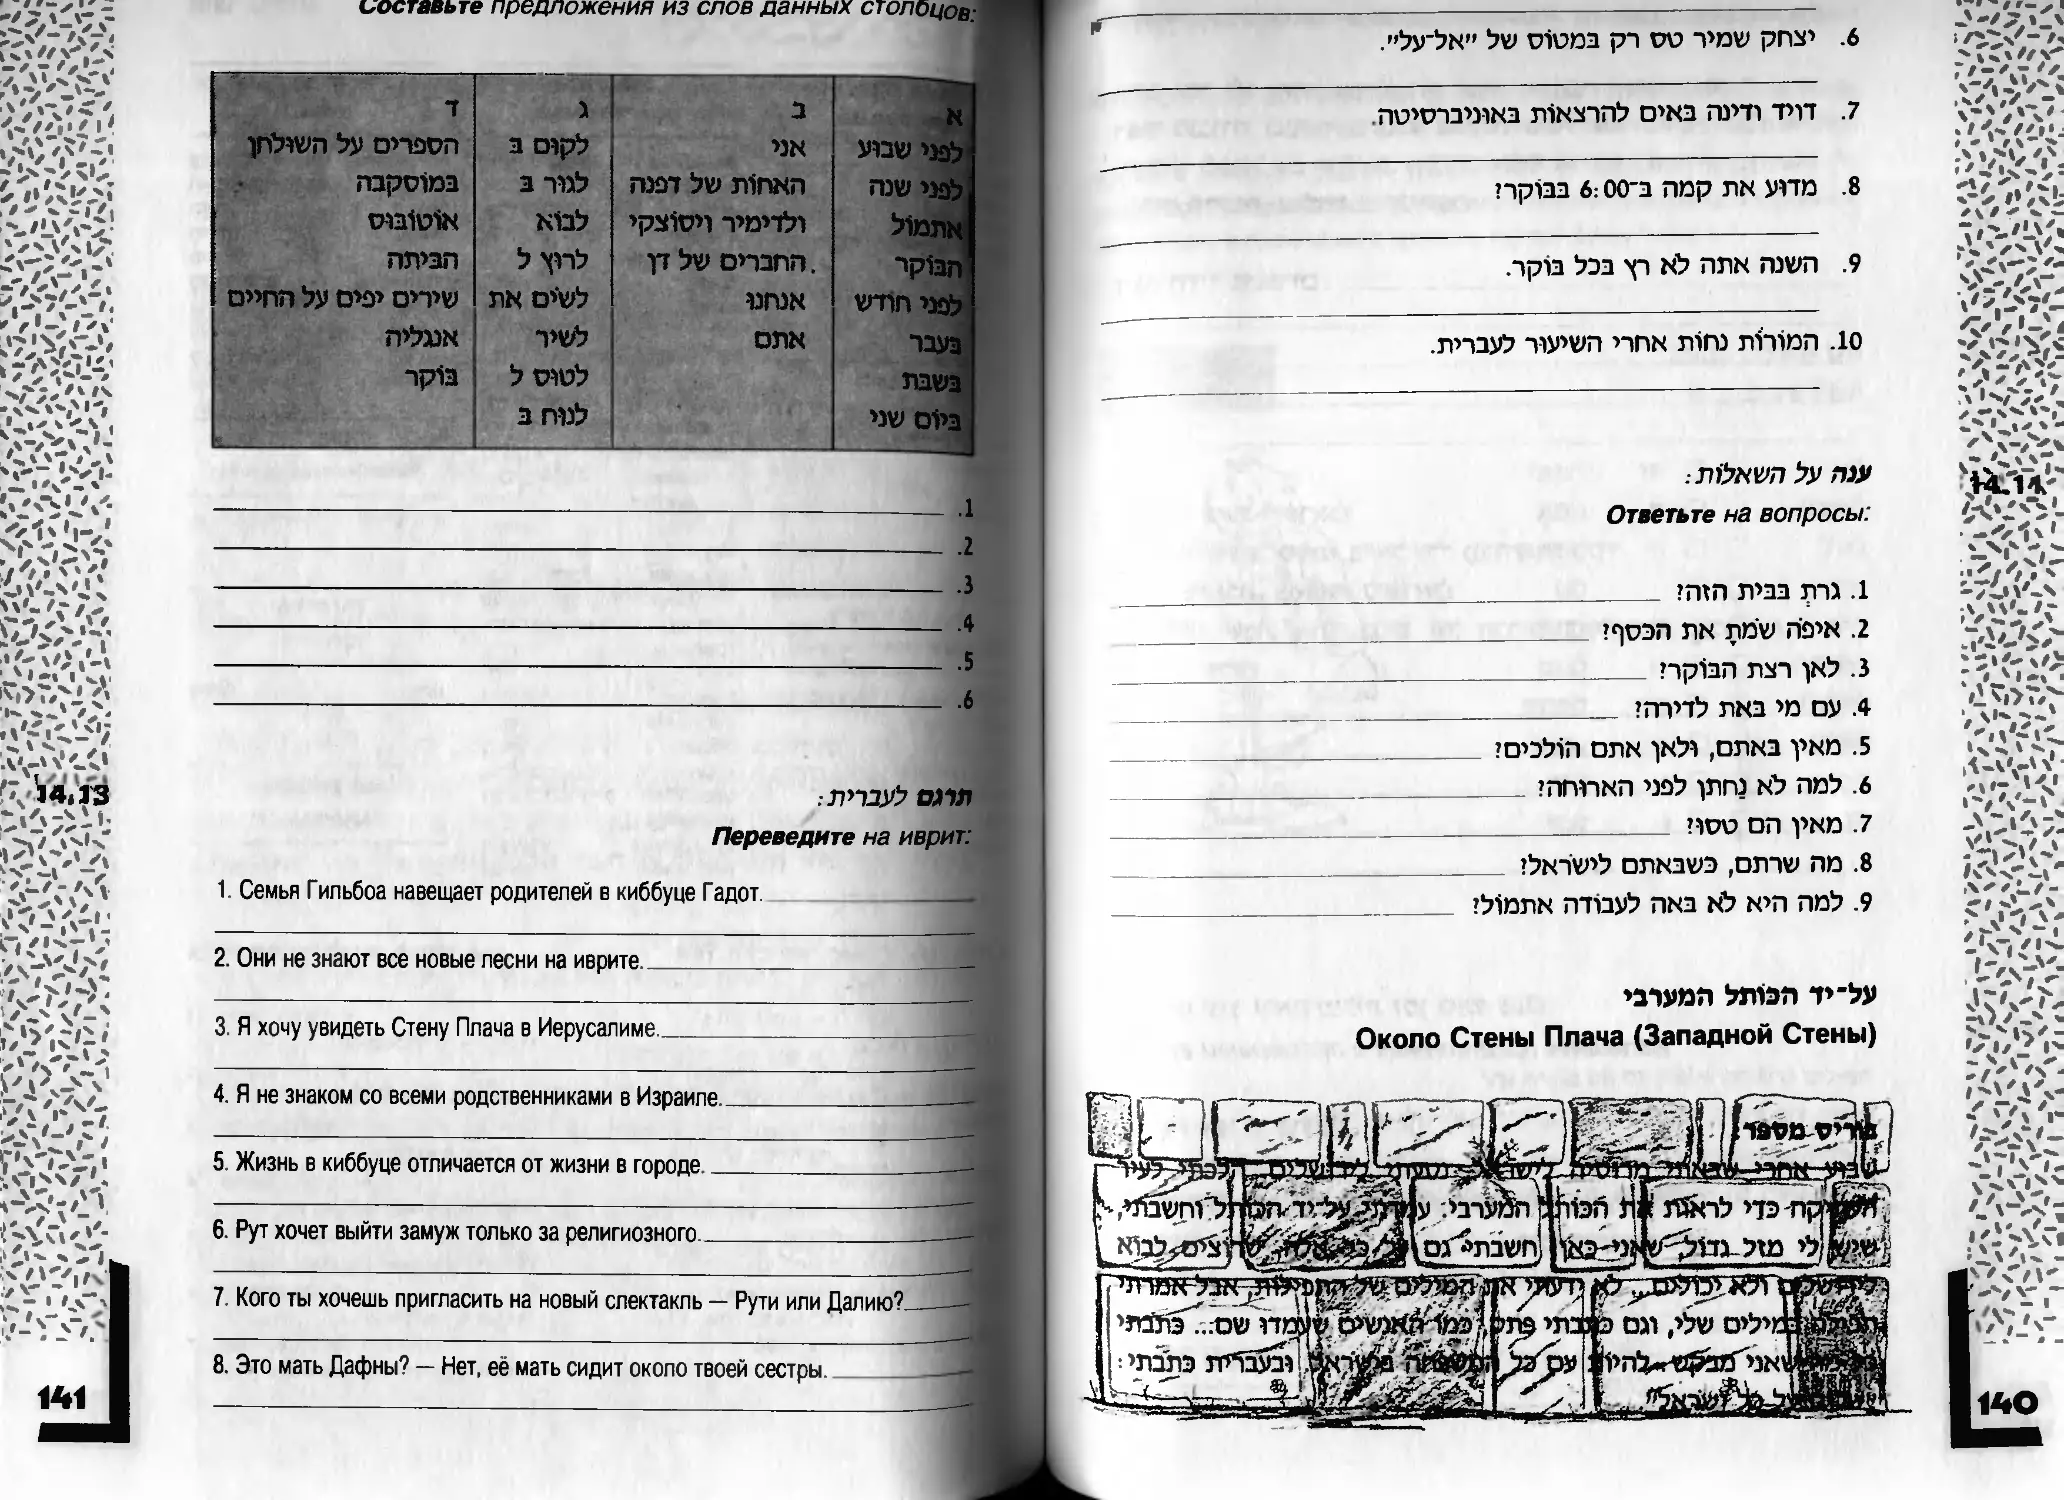 6. יצחק שמיר טס רק במטוס של "אל־על".
7. דויד ודינה באים להרצאות באוניברסיטה.
8. מדוע את קמה ב־6:00 בבוקר?
9. השנה אתה לא רץ בכל בוקר.
10. המורות נחות אחרי השיעור לעברית.
14.11
ענה על השאלות:
Ответьте на вопросы:
1. גרתְ בבית הזה?
2. איפה שׂמתָ את הכסף?
3. לאן רצת הבוקר?
4. עם מי באת לדירה?
5. מאין באתם, ולאן אתם הולכים?
6. למה לא נַחתן לפני הארוחה?
7. מאין הם טסו?
8. מה שרתם, כשבאתם לישׂראל?
9. למה היא לא באה לעבודה אתמול?
על־יד הכותל המערבי
Около Стены Плача (Западной Стены)
בוריס מספר:
שבוע אחרי שבאתי מרוסיה לישראל, נסעתי לירושלים. הלכתי לעיר
העתיקה כדי לראות את הכותל המערבי. עמדתי על־יד הכותל וחשבתי,
שיש לי מזל גדול, שאני כאן. חשבתי גם על כל אלה, שרוצים לבוא
לירושלים ולא יכולים... לא ידעתי את המילים של התפילות, אבל אמרתי
תפילה במילים שלי, וגם כתבתי פתק, כמו האנשים שעמדו שם... כתבתי
שאני מבקש להיות עם כל המשפחה בישראל, ובעברית כתבתי:
על כל ישראל"
140
Составьте предложения из слов данных столбцов:
א ב ג ד
לפני שבוע אני לקום ב הספרים על השולחן
לפני שנה האחות של דפנה לגור ב במוסקבה
אתמול ולדימיר ויסוצקי לבוא אוטובוס
הבוקר החברים של דן לרוץ ל הביתה
לפני חודש אנחנו לשׂים את שירים יפים על החיים
בעבר אתם לשיר אנגליה
בשבת לטוס ל בוקר
ביום שני לנוח ב
1.
2.
3.
4.
5.
6.
14.13
תרגם לעברית:
Переведите на иврит:
1. Семья Гильбоа навещает родителей в киббуце Гадот.
2. Они не знают все новые песни на иврите.
3. Я хочу увидеть Стену Плача в Иерусалиме.
4. Я не знаком со всеми родственниками в Израиле.
5. Жизнь в киббуце отличается от жизни в городе.
6. Рут хочет выйти замуж только за религиозного.
7. Кого ты хочешь пригласить на новый спектакль — Рути или Далию?
8. Это мать Дафны? — Нет, её мать сидит около твоей сестры.
141